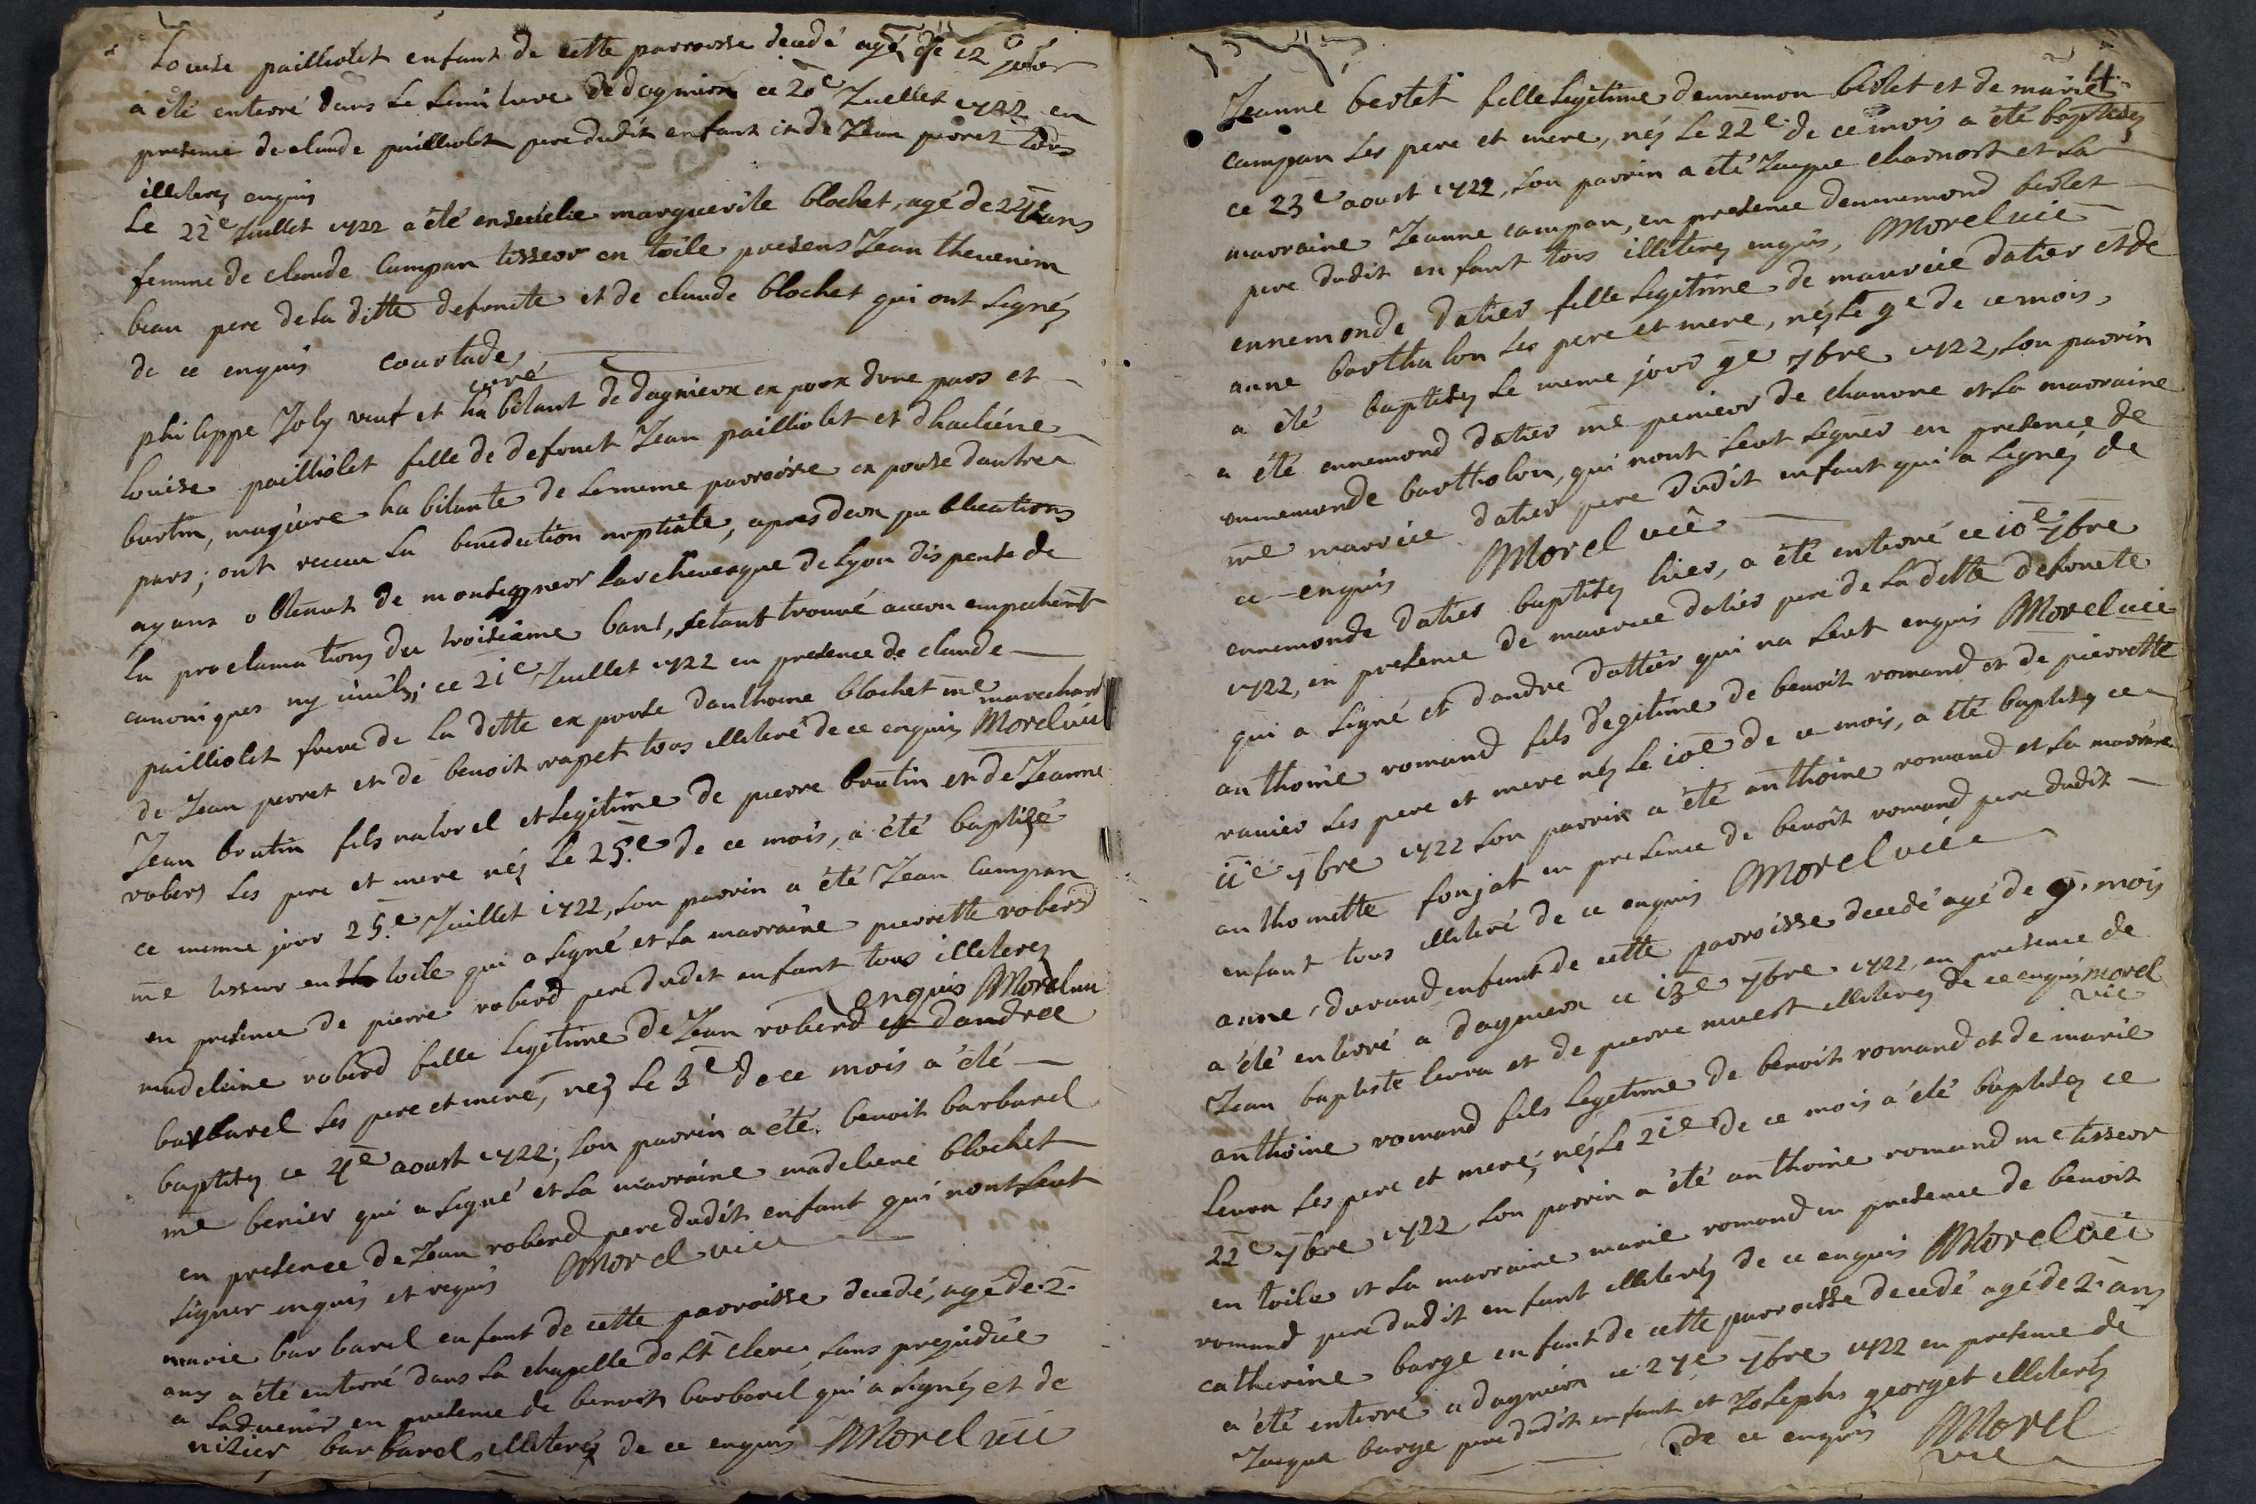 Louise pailliolet enfant de cette parroisse decedé agé de 12 jour
a été enterré dans le simituere de dagnieux ce 20e Juellet 1722 en
presence de claude pailliolet pere dudit enfant et de Jean perret tous
illiterez enquis
Le 22e Juillet 1722 a été ensevelie marguerite blochet, agé de ans
femme de claude Campan tisseor en toile presens Jean thevenin
beau pere de la ditte defuncte et de claude blochet qui ont signéz
de ce enquis courtade
curé
philippe Joly veuf et habitant de dagnieux ex poux dune pars et
Louise pailliolet fille de defunct Jean pailliolet et
burtin, magieure habitante de le meme parroisse ex pouse dautre
pars; ont receu la benediction nuptiale, apres deux publications
ayant obtenut de monseigneor larchevesque de Lyon dispense de
la proclamations du troisieme banc, setant trouvé aucun empechemt
canoniques ny civils; ce 21e Juillet 1722 en presence de claude
pailliolet frere de la ditte ex pouse danthoine blochet me marechard
de Jean perret et de benoit rapet tous illiteré de ce enquis Morel vic
Jean brutin fils naturel et legitime de pierre brutin et de Jeanne
robert ses pere et mere néz le 25.e de ce mois, a été baptisé
ce meme jour 25.e Juillet 1722, son parrin a été Jean Campan
me tisseur en toile qui a signé et la marraine pierrette roberd
en presence de pierre roberd pere dudit enfant tous illiterez
enquis Morel vic
madelaine roberd fille legitime de Jean roberd et dandree
barbarel ses pere et mere, nez le 3e de ce mois a été
baptisez ce 4e aoust 1722; son parrin a été benoit barbarel
me benier qui a signé et la marraine madeleine blochet
en presence de Jean roberd pere dudit enfant qui nont seut
signer enquis et requis Morel vic
marie barbarel enfant de cette parroisse decedé, agé de 2
ans a été enterré dans la chapelle de St clerc, sans prejudice
a ladvenir en presence de benoit barbarel qui a signéz et de
nizier barbarel illiteréz de ce enquis Morel vic
4.
Jeanne bertet fille legitime dennemon bertet et de marie
campan ses pere et mere, néz le 22e de ce mois a été baptisez
ce 23e aoust 1722, son parrin a été Jacque charnost et sa
marraine Jeanne campan, en presence dennemond bertet
pere dudit enfant tous illiterez enquis, Morel vic
ennemonde datier fille legitime de maurice datier et de
anne barthalon ses pere et mere, néz le 9e de ce mois
a été baptisez le meme jour 9e 7bre 1722, son parrin
a été ennemond datier me penieor de chanvre et la marraine
ennemonde bartholon, qui nont seut signer en presence de
me maurice datier pere dudit enfant qui a signéz de
ce enquis Morel vic
ennemonde datier baptisez hier, a été enterré ce 10e 7bre
1722, en presence de maurice datier pere de la ditte defuncte
qui a signé et dandre dattier qui na seut enquis Morel vic
anthoine romand fils legitime de benoit romand et de pierrette
ranier ses pere et mere néz le 10e de ce mois, a été baptisez ce
11e 7bre 1722 son parrin a été anthoine romand et la marraine
anthomette fonjat en presence de benoit romand pere dudit
enfant tous illiteré de ce enquis Morel vic
anne durand enfant de cette parroisse decedé agé de 9. mois
a été enterré a dagnieux ce 13e 7bre 1722, en presence de
Jean baptiste levra et de pierre muest illiterez de ce enquis morel
vic
anthoine romand fils legitime de benoit romand et de marie
levra ses pere et mere, néz le 21e de ce mois a été baptisez ce
22e 7bre 1722 son parrin a été anthoine romand me tisseor
en toile et la marraine marie romand en presence de benoit
romand pere dudit enfant illiteréz de ce enquis Morel vic
catherine barge enfant de cette parroisse decedé agé de 2. ans
a été enterré a dagnieux ce 27e 7bre 1722 en presence de
Jacque barge pere dudit enfant et Josephs georget illiteréz
de ce enquis Morel
vic